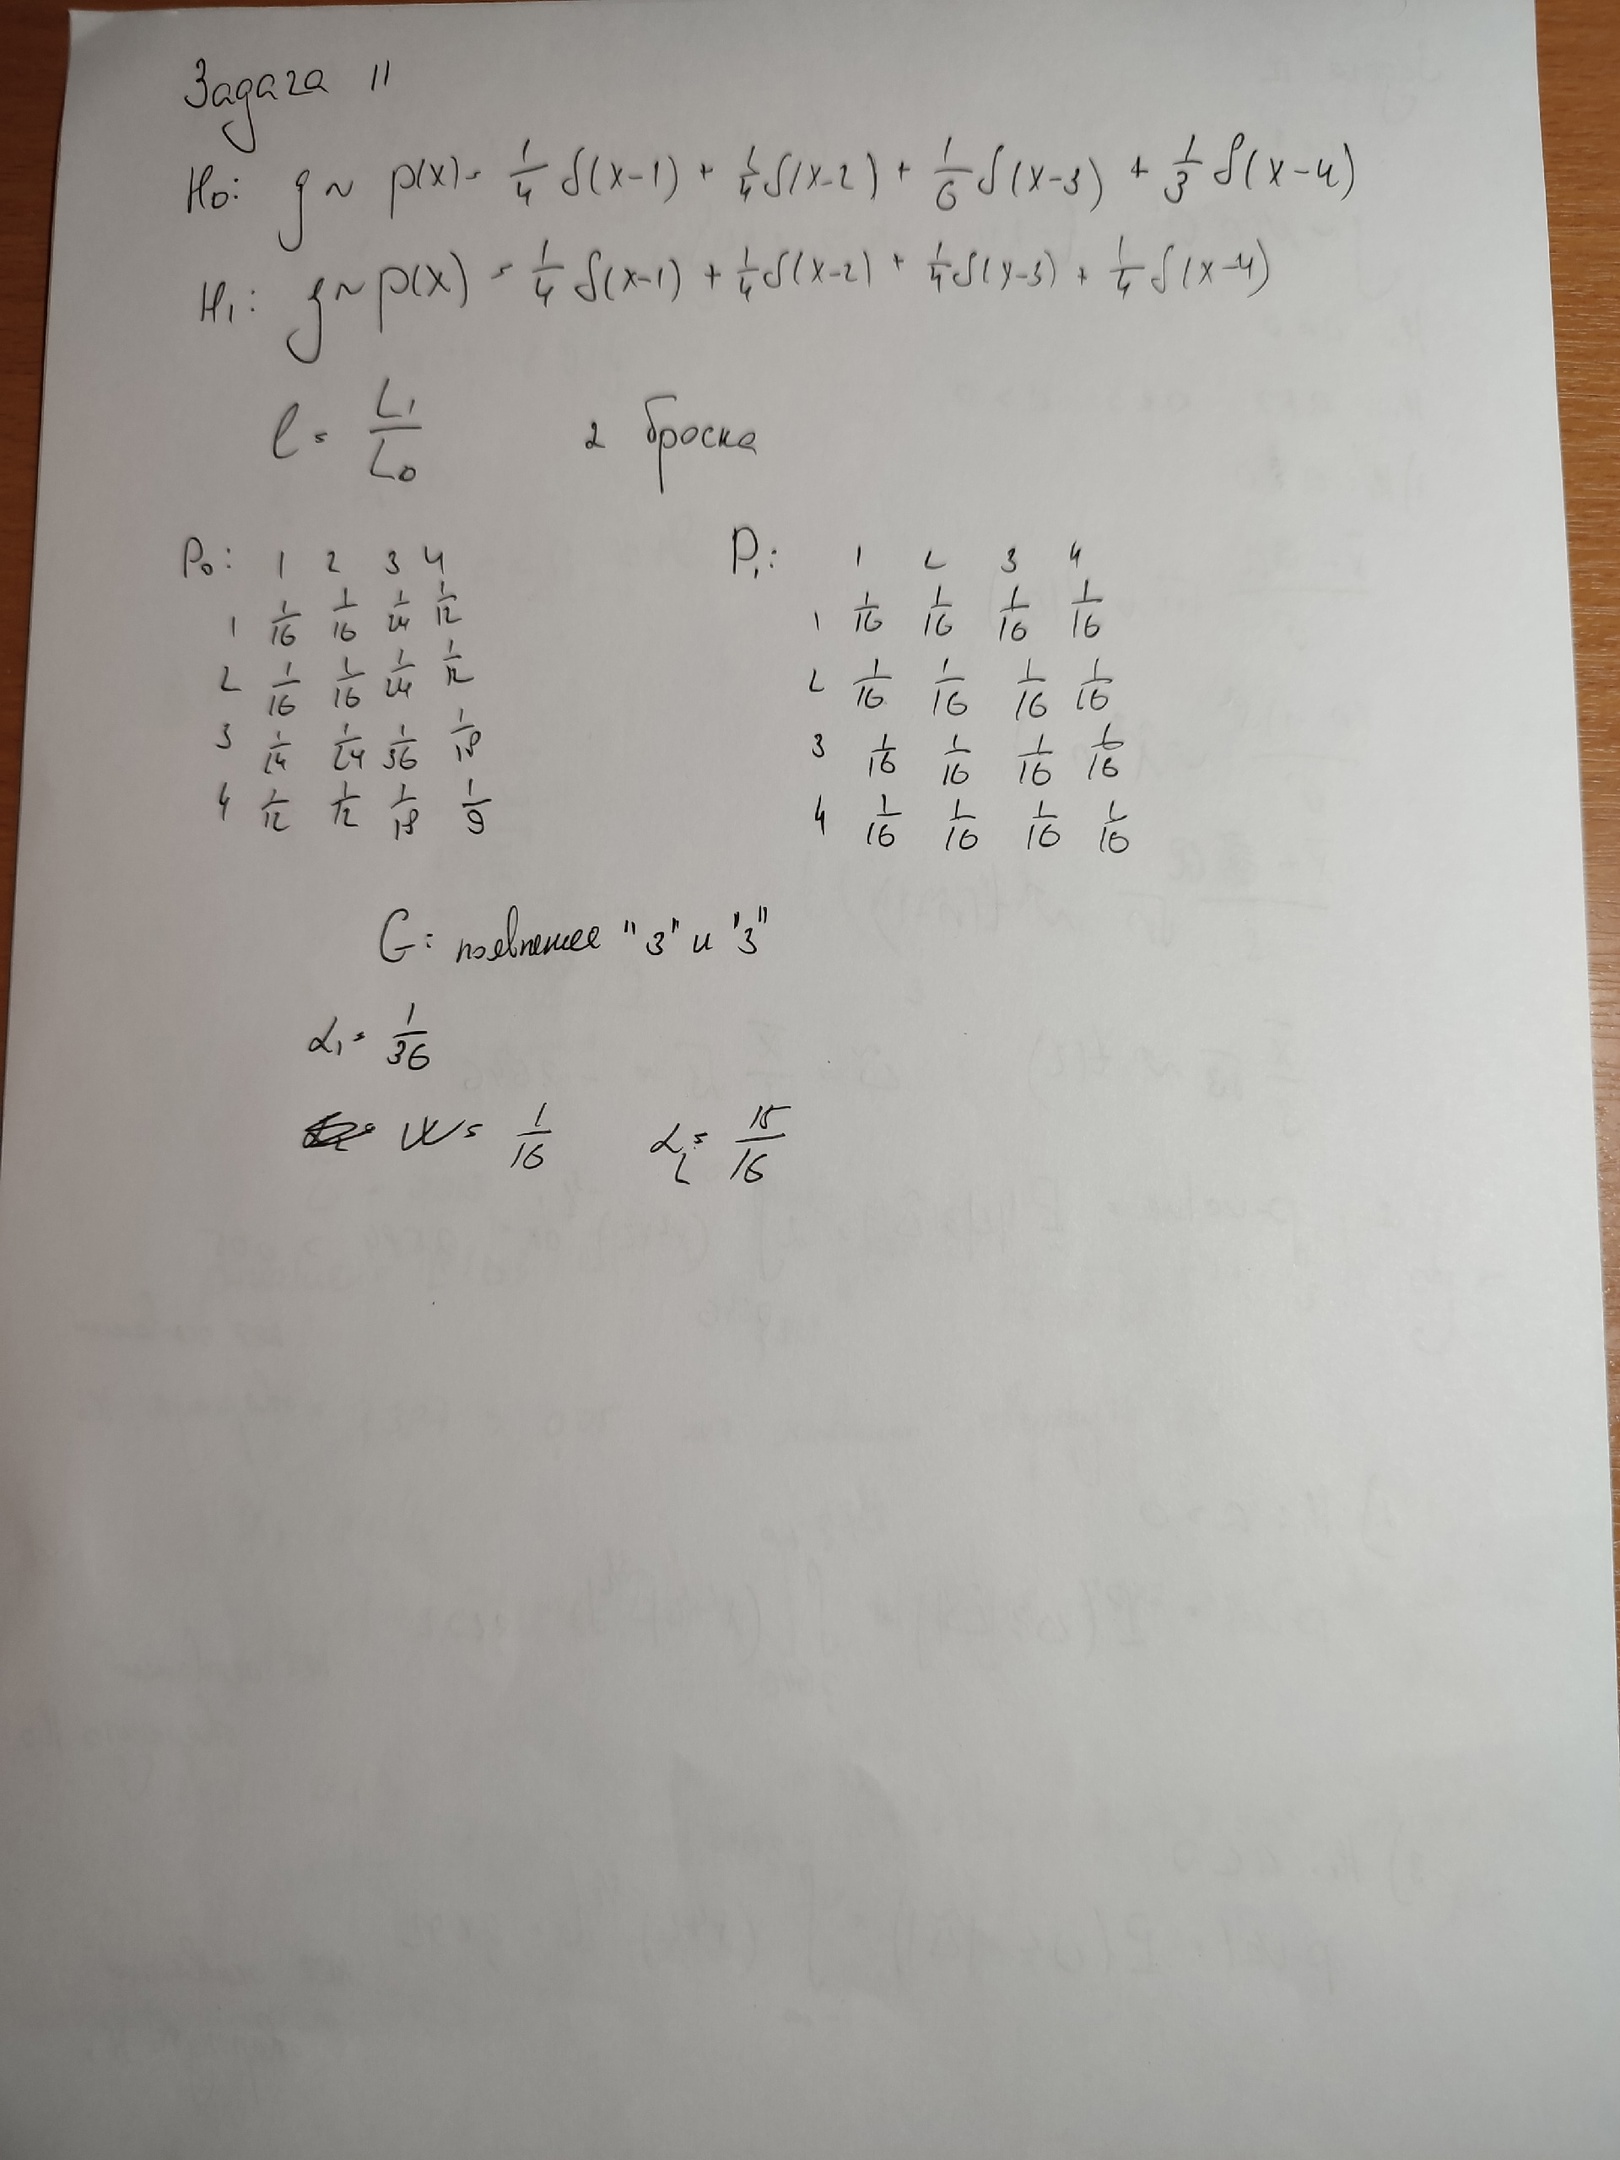 Задача 11
H₀: ξ ~ p(x) = 1/4 δ(x-1) + 1/4 δ(x-2) + 1/6 δ(x-3) + 1/3 δ(x-4)
H₁: ξ ~ p(x) = 1/4 δ(x-1) + 1/4 δ(x-2) + 1/4 δ(x-3) + 1/4 δ(x-4)
l = L₁/L₀ 2 броска
P₀: 1 2 3 4 P₁: 1 2 3 4
1 1/16 1/16 1/24 1/12 1 1/16 1/16 1/16 1/16
2 1/16 1/16 1/24 1/12 2 1/16 1/16 1/16 1/16
3 1/24 1/24 1/36 1/18 3 1/16 1/16 1/16 1/16
4 1/12 1/12 1/18 1/9 4 1/16 1/16 1/16 1/16
G: появление "3" и "3"
α₁ = 1/36
W = 1/16 α₂ = 15/16